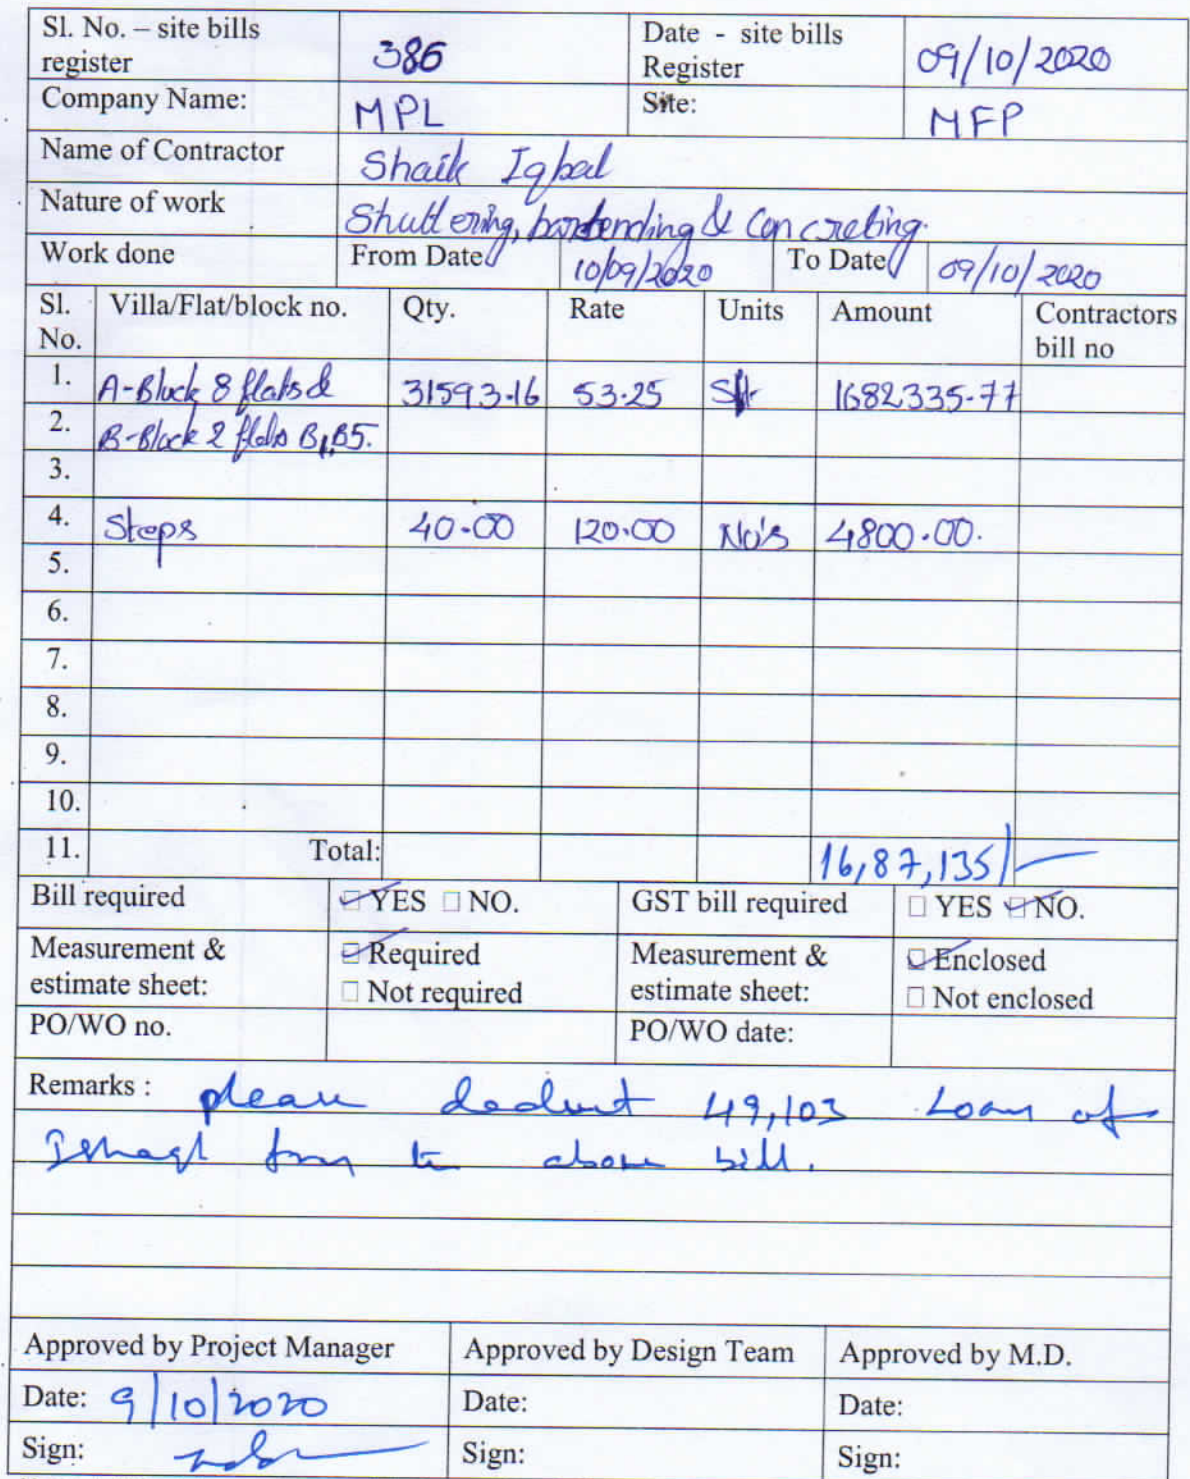 Sl. No. – site bills register 386 Date - site bills Register 09/10/2020
Company Name: MPL Site: MFP
Name of Contractor Shaik Iqbal
Nature of work Shuttering, barbending & Concreting.
Work done From Date 10/09/2020 To Date 09/10/2020
Sl. No. Villa/Flat/block no. Qty. Rate Units Amount Contractors bill no
1. A-Block 8 flats & 31593.16 53.25 Sft 1682335.77
2. B-Block 2 flats B1,B5.
3.
4. Steps 40.00 120.00 No's 4800.00.
5.
6.
7.
8.
9.
10.
11. Total: 16,87,135/-
Bill required YES NO. GST bill required YES NO.
Measurement & estimate sheet: Required Not required Measurement & estimate sheet: Enclosed Not enclosed
PO/WO no. PO/WO date:
Remarks : please deduct 49,103 Loan of
from the above bill.
Approved by Project Manager Approved by Design Team Approved by M.D.
Date: 9/10/2020 Date: Date:
Sign: Sign: Sign: